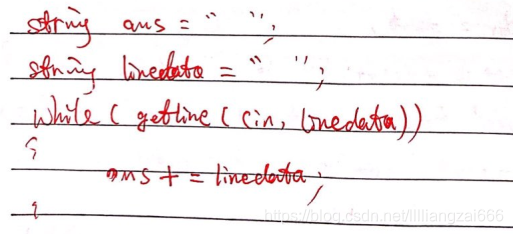 string ans = " ";
string linedata = " ";
while ( getline ( cin, linedata))
{
ans += linedata;
}
https://blog.csdn.net/llllliangzai666